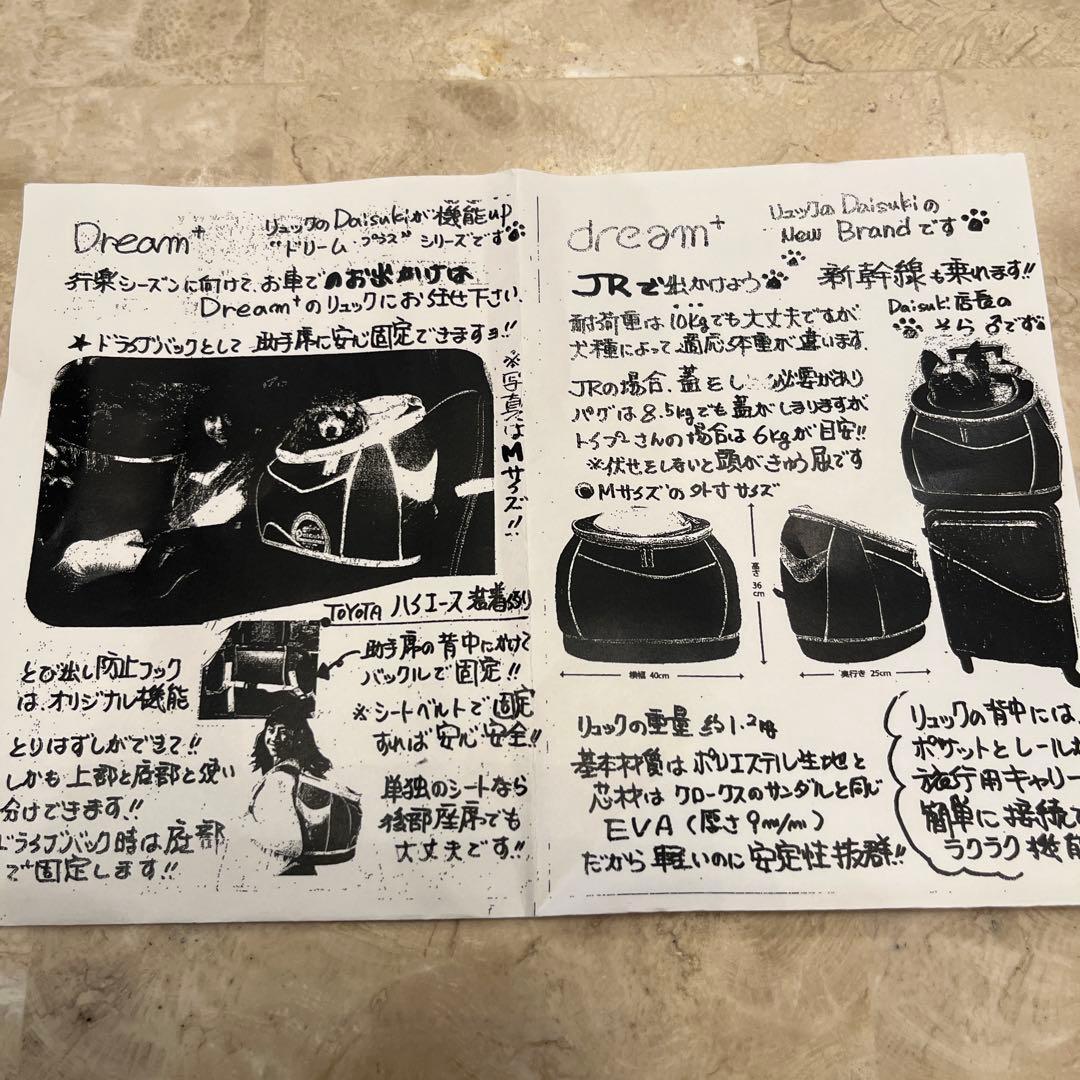 Dream⁺
リュックのDaisukiが機能up
"ドリーム・プラス"シリーズです
行楽シーズンに向けて、お車でのお出かけは
Dream⁺のリュックにお任せ下さい。
★ドライブバックとして助手席に安心固定できますョ!!
※写真はMサイズ!!
Daisuki
TOYOTA ハイエース装着例
とび出し防止フック
は、オリジナル機能
とりはずしができて!!
しかも上部と底部と使い
分けできます!!
ドライブバック時は底部
で固定します!!
助手席の背中にかけて
バックルで固定!!
※シートベルトで固定
すれば安心安全!!
単独のシートなら
後部座席でも
大丈夫です!!
dream⁺
リュックのDaisukiの
New Brandです
JRで出かけよう
新幹線も乗れます!!
Daisuki店長の
そら♂です
耐荷重は10kgでも大丈夫ですが
犬種によって適応体重が違います。
JRの場合、蓋をし 必要があり
パグは8.5kgでも蓋がしまりますが
トイプーさんの場合は6kgが目安!!
※伏せをしないと頭がきゅう屈です
●Mサイズの外寸サイズ
高さ 36cm
横幅 40cm
奥行き 25cm
リュックの重量 約1.2kg
基本材質はポリエステル生地と
芯材はクロークスのサンダルと同じ
EVA(厚さ9m/m)
だから軽いのに安定性抜群!!
リュックの背中には、
ポケットとレールが
旅行用キャリー
簡単に接続で
ラクラク機能